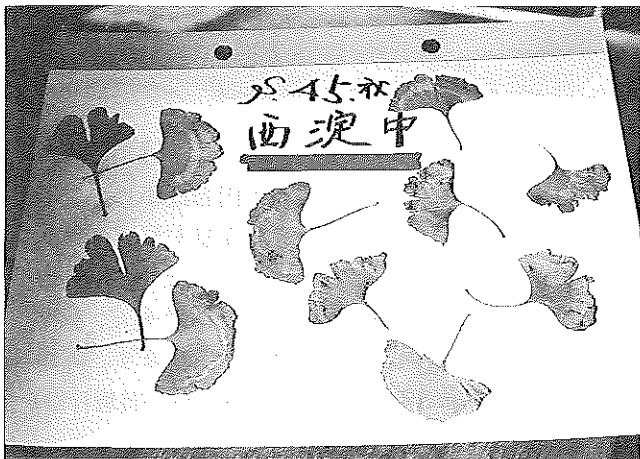 S45.秋
西淀中